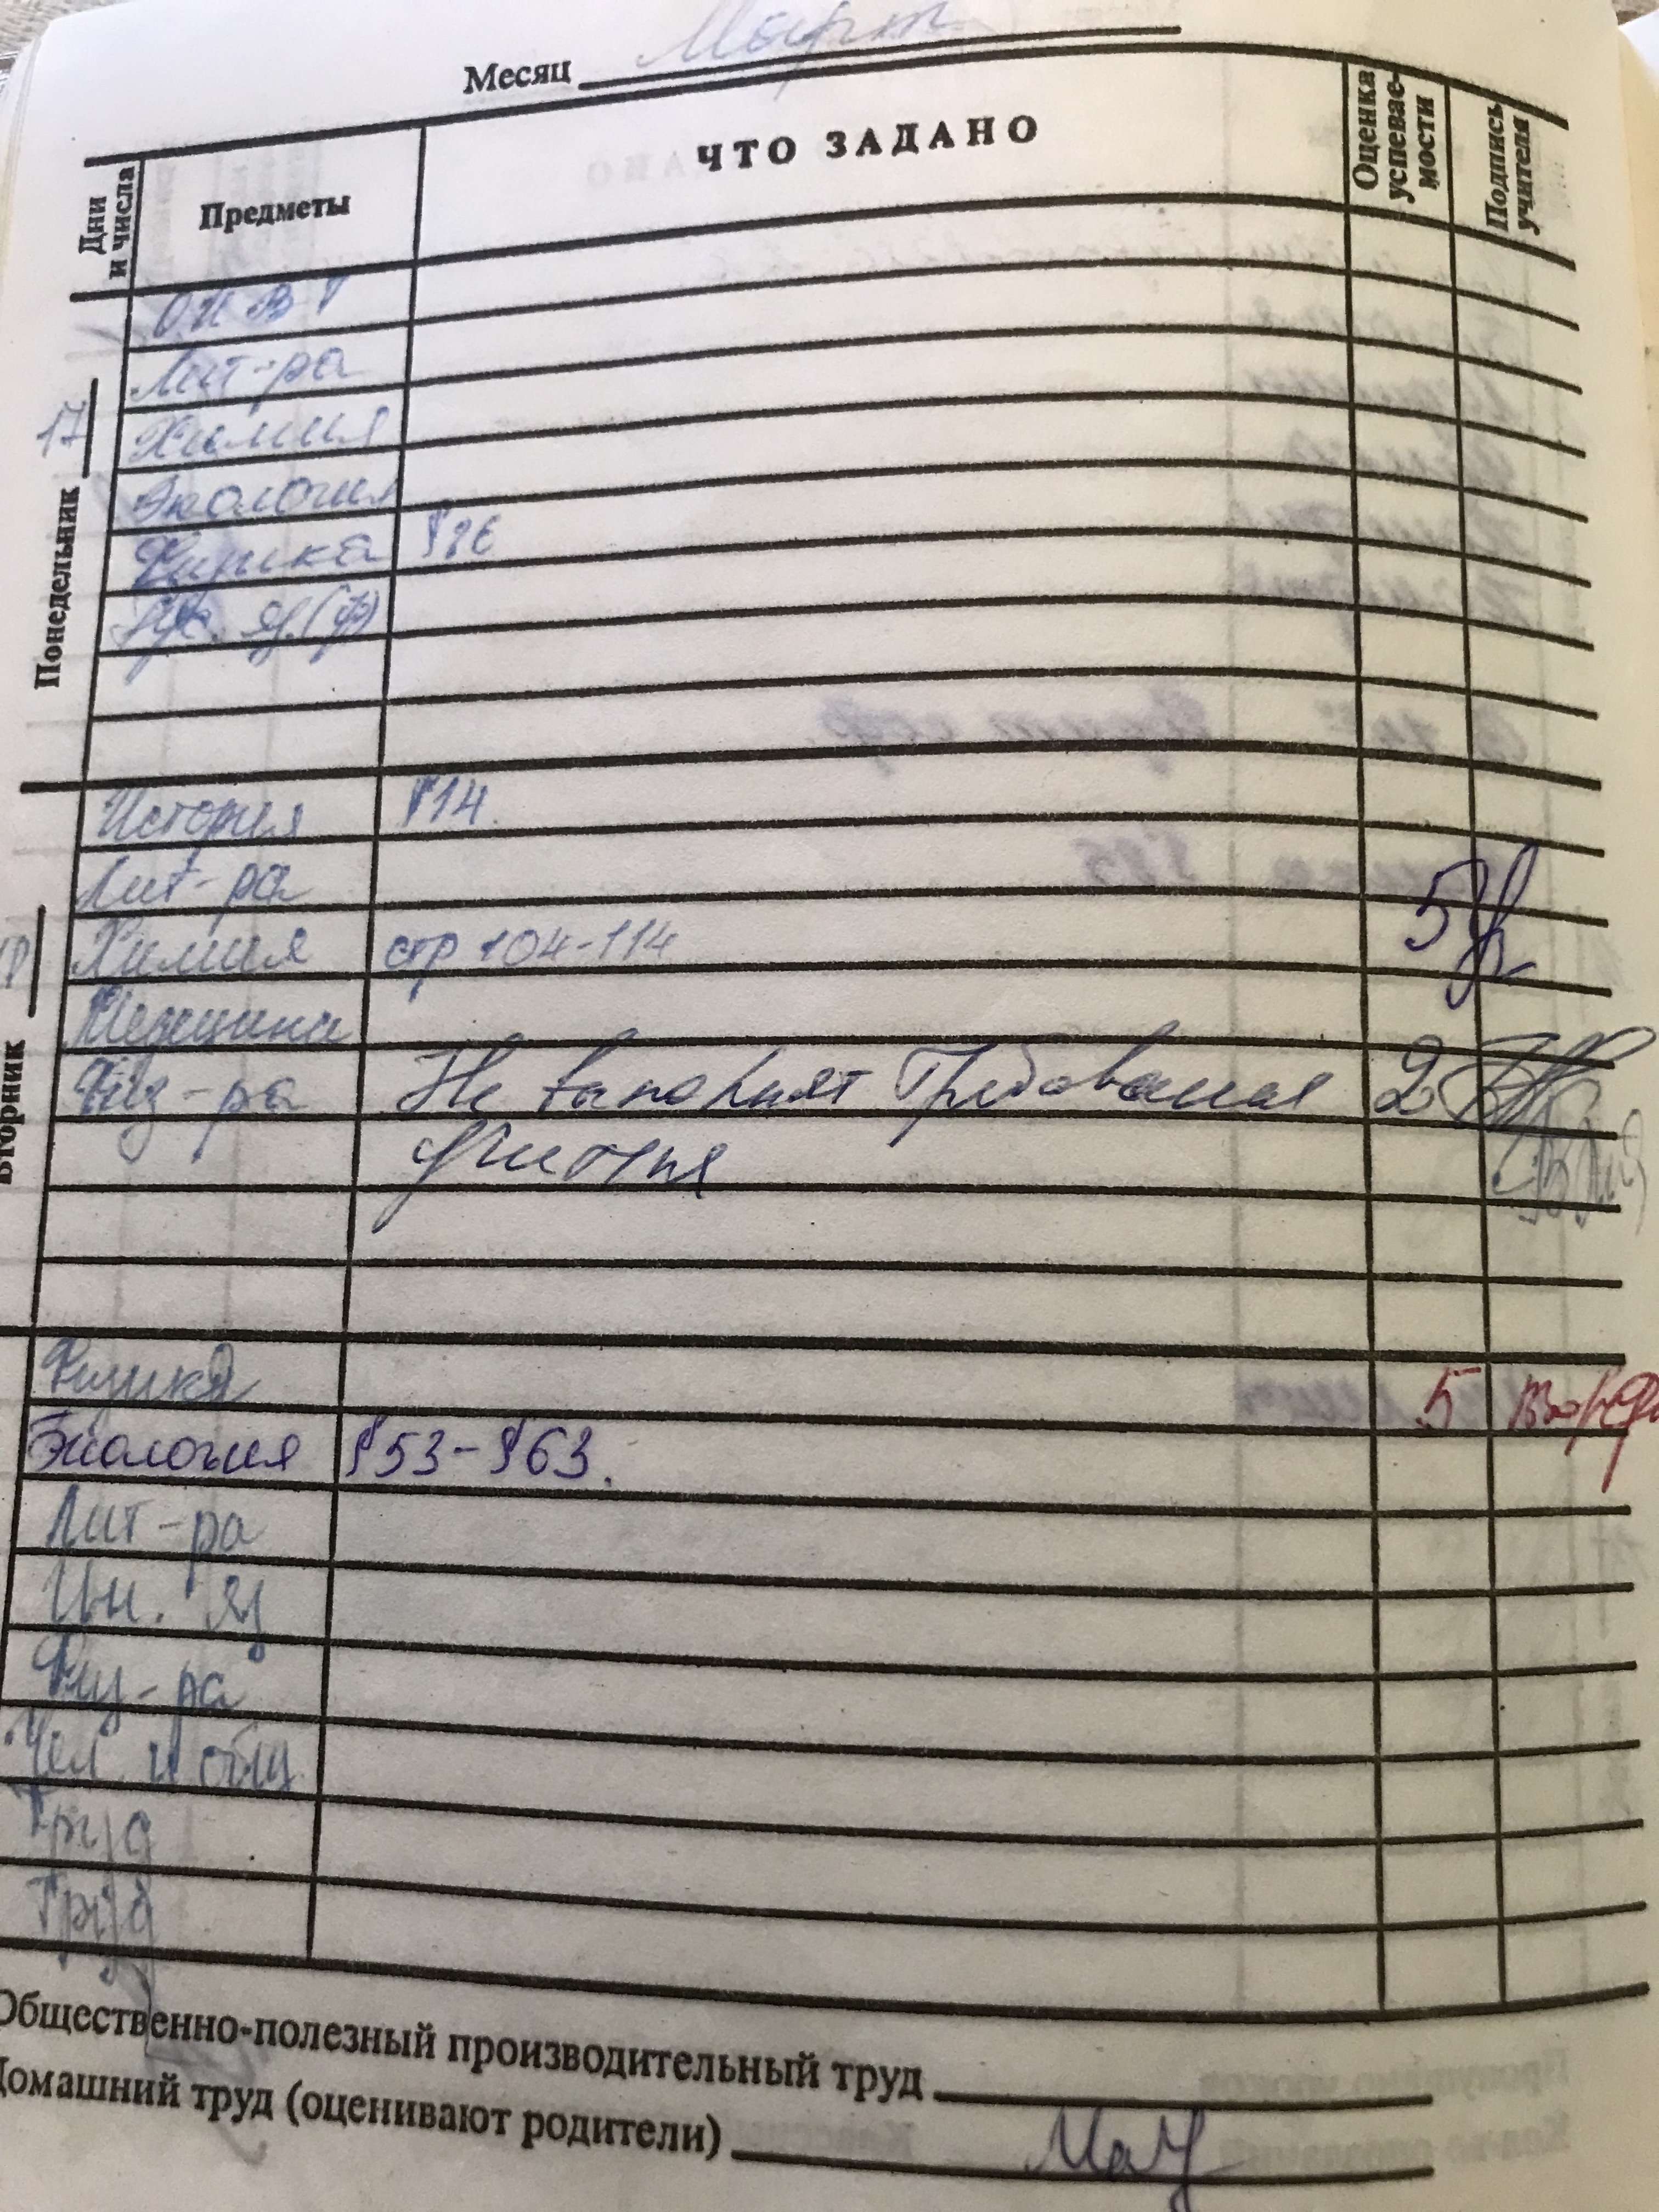 Месяц Март
Дни и числа Предметы ЧТО ЗАДАНО Оценка успевае-мости Подпись учителя
Понедельник 17
ОИВТ
Лит-ра
Химия
Экология
Физика §26
Рус. яз.(ф)
Вторник 18
История §14.
Лит-ра
Химия стр 104-114 5
Медицина
Физ-ра Не выполняет требования 2
учителя
Физика 5
Экология §53-§63.
Лит-ра
Ин. яз
Физ-ра
Чел. и общ.
Труд
Труд
Общественно-полезный производительный труд
Домашний труд (оценивают родители)